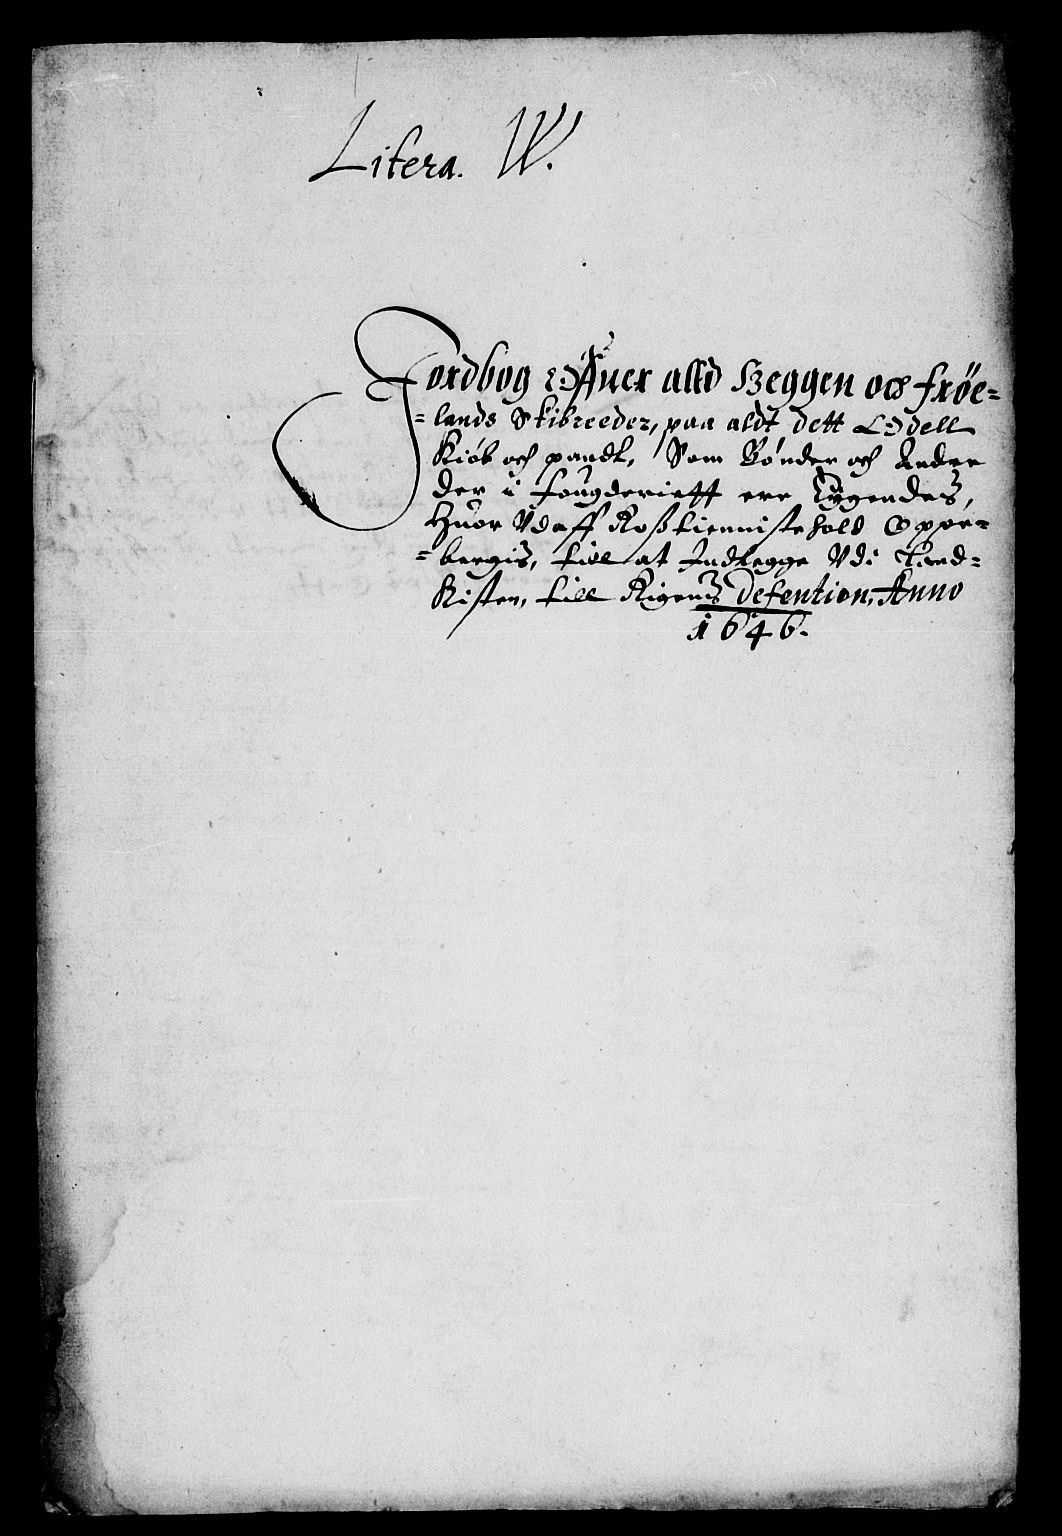 Litera. W.
Jordbog offuer alld Heggen och frøe=
=lands Skibreeder, paa aldt dett Odell
Kiøb och pandt, Som Bønder och Andre
der i fougderieff ere Eyendes,
Huor Vdaff Roßtiennistehold Oppe=
=bergis, till at Indlegge Vdi Land=
Kisten, till Rigens Defention, Anno
1646.